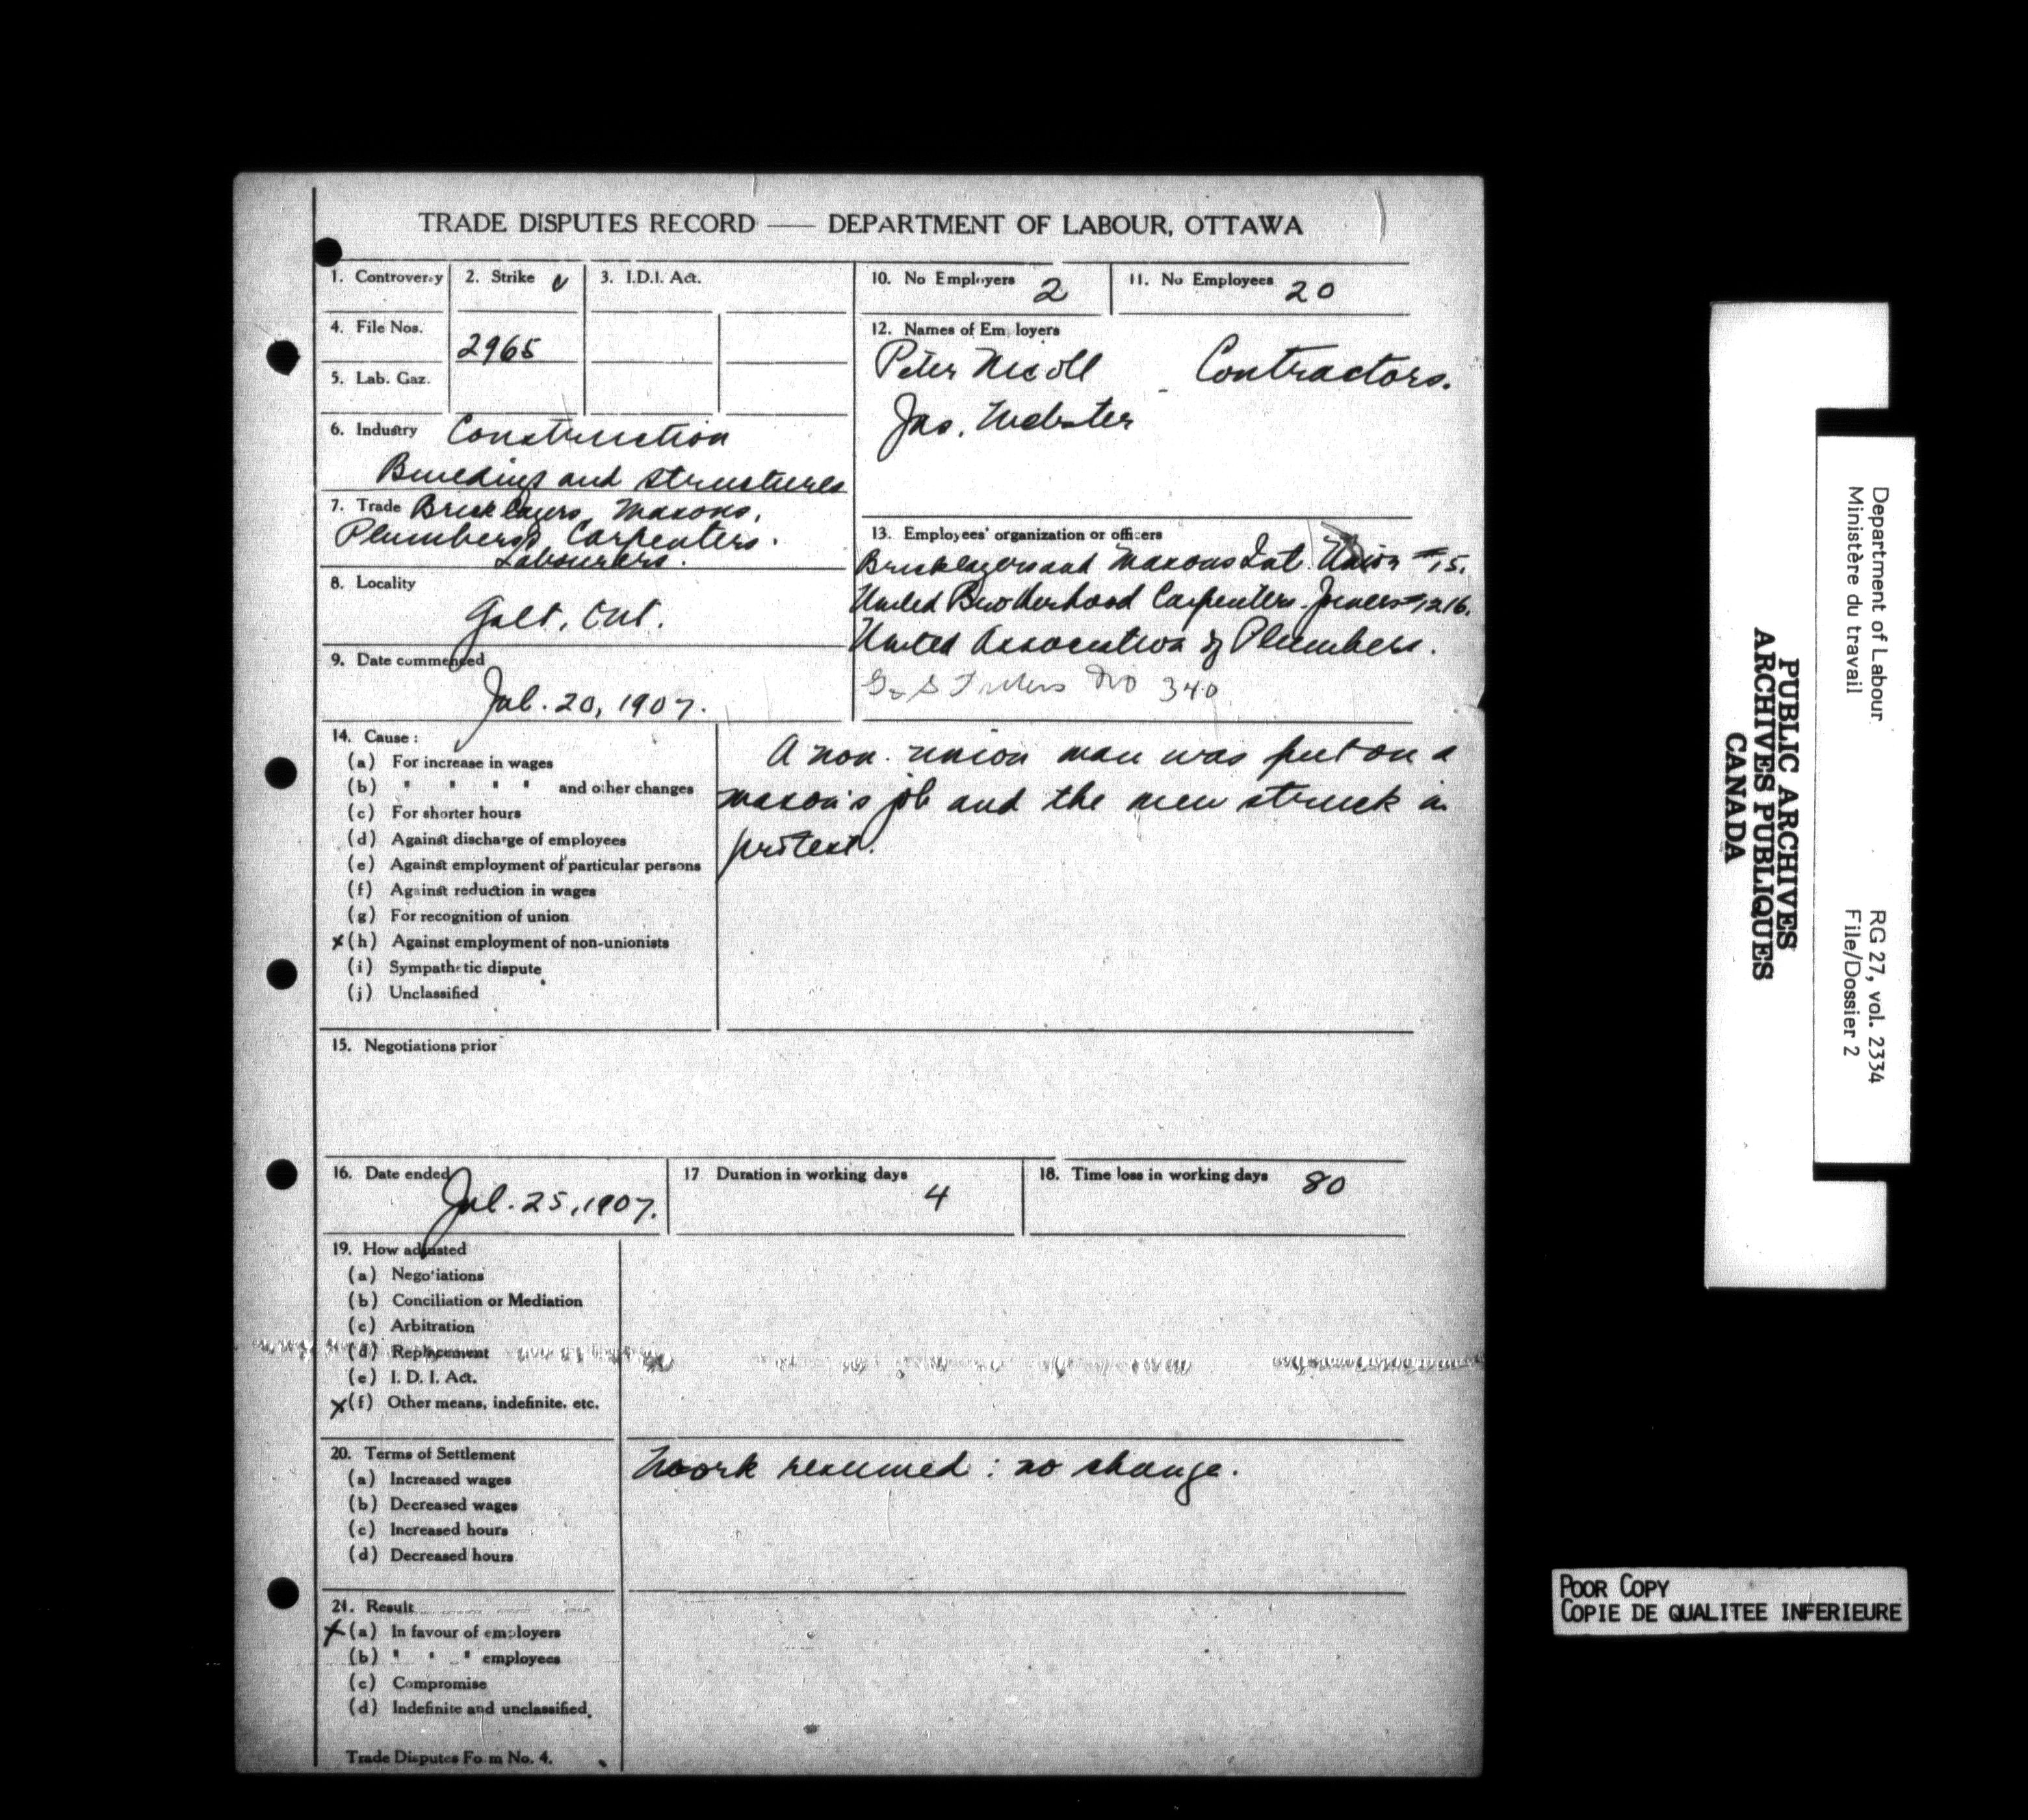 TRADE DISPUTES RECORD — DEPARTMENT OF LABOUR, OTTAWA
1. Controversy
2. Strike
3. I.D.I. Act.
4. File Nos.
2965
5. Lab. Gaz.
6. Industry Construction
Buildings and structures
7. Trade Bricklayers, Masons,
Plumbers, Carpenters.
Labourers.
8. Locality
Galt, Ont.
9. Date commenced
Jul. 20, 1907.
10. No Employers 2
11. No Employees 20
12. Names of Employers
Peter Nicoll - Contractors.
Jas. Webster
13. Employees' organization or officers
Bricklayers and Masons Int. Union #15.
United Brotherhood Carpenters - Joiners #1216.
United Association of Plumbers.
G & S Fitters No 340
14. Cause :
(a) For increase in wages
(b) " " " " and other changes
(c) For shorter hours
(d) Against discharge of employees
(e) Against employment of particular persons
(f) Against reduction in wages
(g) For recognition of union
x (h) Against employment of non-unionists
(i) Sympathetic dispute
(j) Unclassified
A non-union man was put on a
mason's job and the men struck in
protest.
15. Negotiations prior
16. Date ended
Jul. 25, 1907.
17 Duration in working days
4
18. Time loss in working days 80
19. How adjusted
(a) Negotiations
(b) Conciliation or Mediation
(c) Arbitration
(d) Replacement
(e) I. D. I. Act.
x (f) Other means, indefinite, etc.
20. Terms of Settlement
(a) Increased wages
(b) Decreased wages
(c) Increased hours
(d) Decreased hours
Work resumed : no change.
21. Result
x (a) In favour of employers
(b) " " " employees
(c) Compromise
(d) Indefinite and unclassified.
Trade Disputes Form No. 4.
Department of Labour
Ministère du travail
RG 27, vol. 2334
File/Dossier 2
PUBLIC ARCHIVES
ARCHIVES PUBLIQUES
CANADA
POOR COPY
COPIE DE QUALITEE INFERIEURE